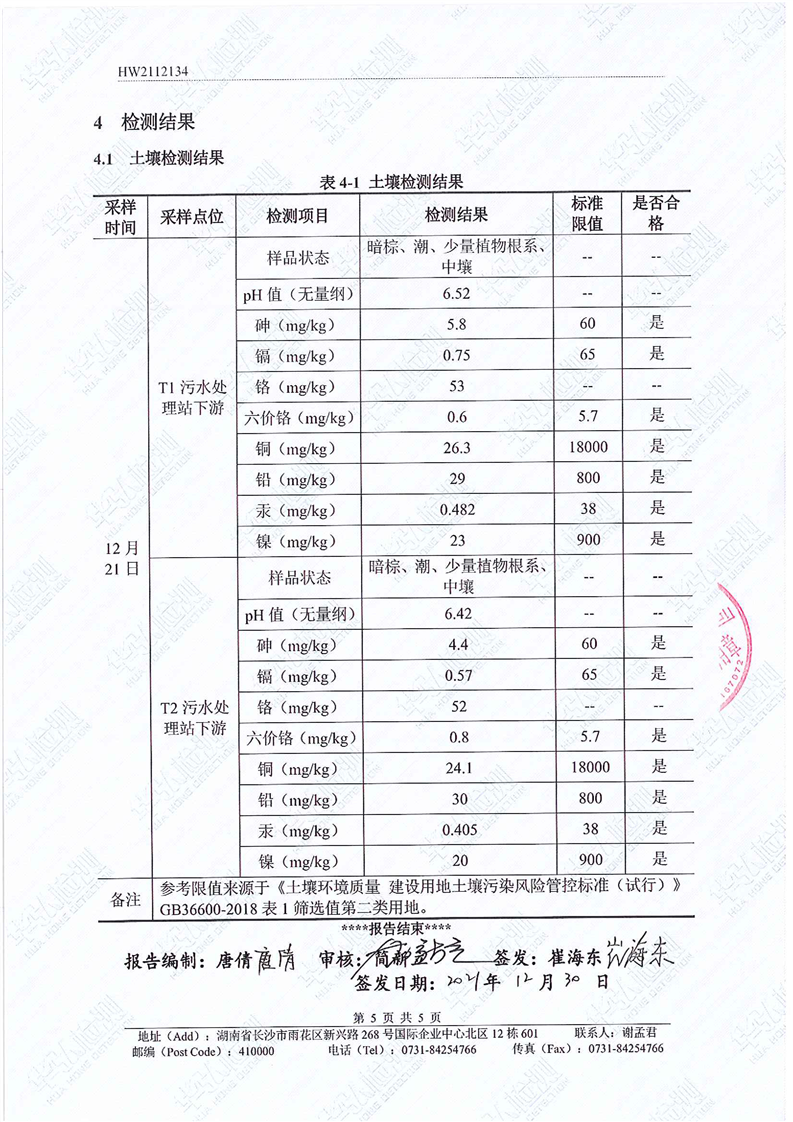 HW2112134
4 检测结果
4.1 土壤检测结果
表 4-1 土壤检测结果
采样时间 采样点位 检测项目 检测结果 标准限值 是否合格
12 月 21 日
T1 污水处理站下游
样品状态 暗棕、潮、少量植物根系、中壤 -- --
pH 值（无量纲） 6.52 -- --
砷（mg/kg） 5.8 60 是
镉（mg/kg） 0.75 65 是
铬（mg/kg） 53 -- --
六价铬（mg/kg） 0.6 5.7 是
铜（mg/kg） 26.3 18000 是
铅（mg/kg） 29 800 是
汞（mg/kg） 0.482 38 是
镍（mg/kg） 23 900 是
T2 污水处理站下游
样品状态 暗棕、潮、少量植物根系、中壤 -- --
pH 值（无量纲） 6.42 -- --
砷（mg/kg） 4.4 60 是
镉（mg/kg） 0.57 65 是
铬（mg/kg） 52 -- --
六价铬（mg/kg） 0.8 5.7 是
铜（mg/kg） 24.1 18000 是
铅（mg/kg） 30 800 是
汞（mg/kg） 0.405 38 是
镍（mg/kg） 20 900 是
备注 参考限值来源于《土壤环境质量 建设用地土壤污染风险管控标准（试行）》
GB36600-2018 表 1 筛选值第二类用地。
****报告结束****
报告编制：唐倩 审核： 签发：崔海东 崔海东
签发日期：2021 年 12 月 30 日
第 5 页 共 5 页
地址（Add）：湖南省长沙市雨花区新兴路 268 号国际企业中心北区 12 栋 601 联系人：谢孟君
邮编（Post Code）：410000 电话（Tel）：0731-84254766 传真（Fax）：0731-84254766